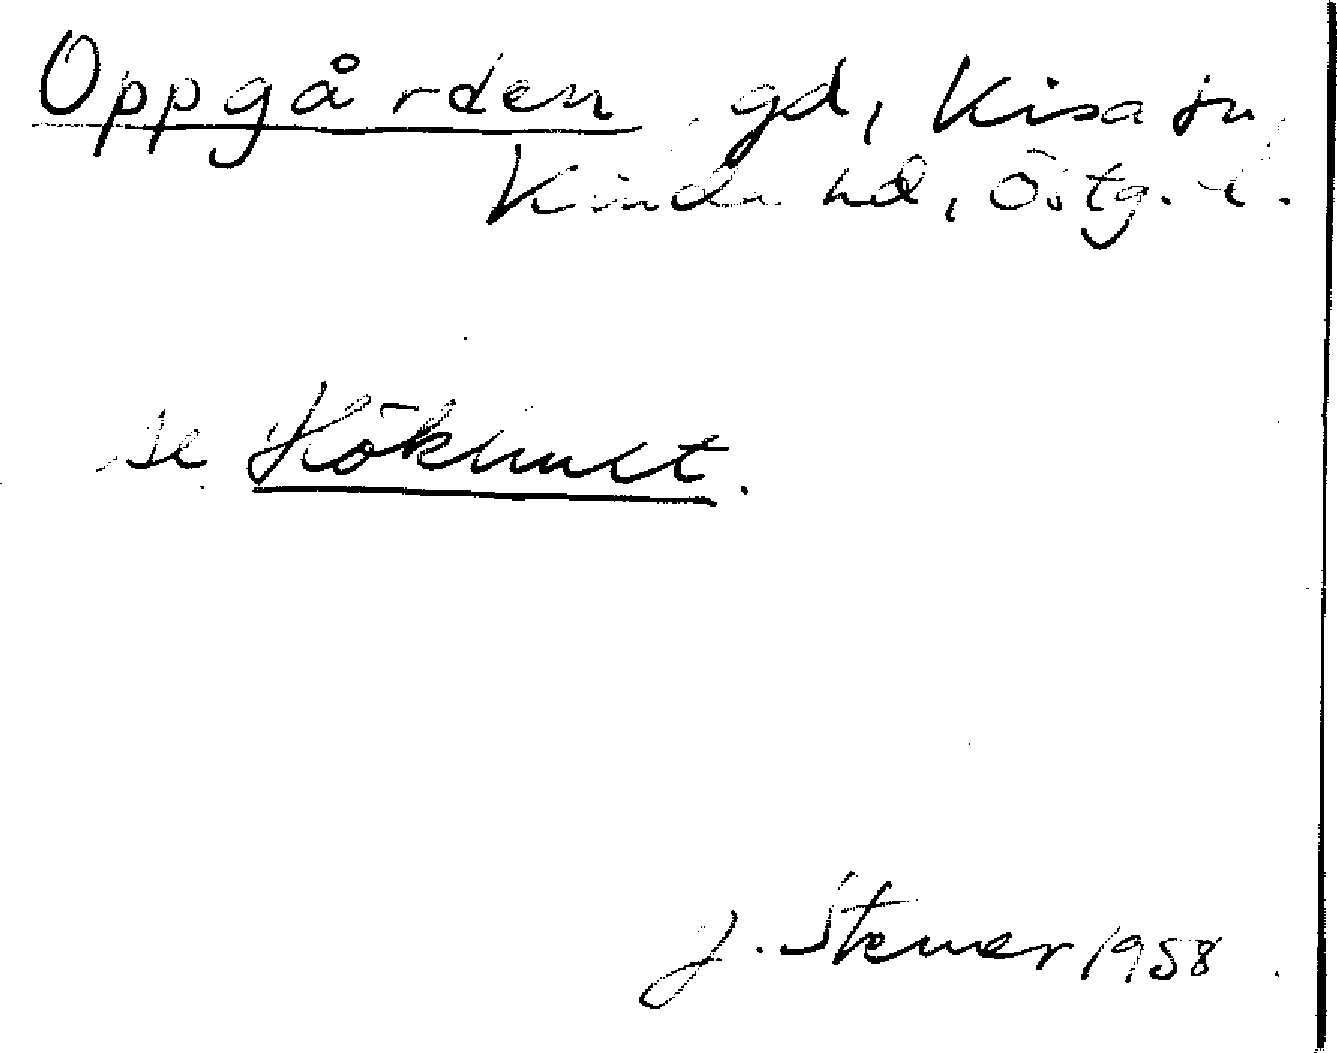 Oppgården gd, Kisa sn,
Kinda hd, Östg. l.
se Hökhult.
J. Stener 1958